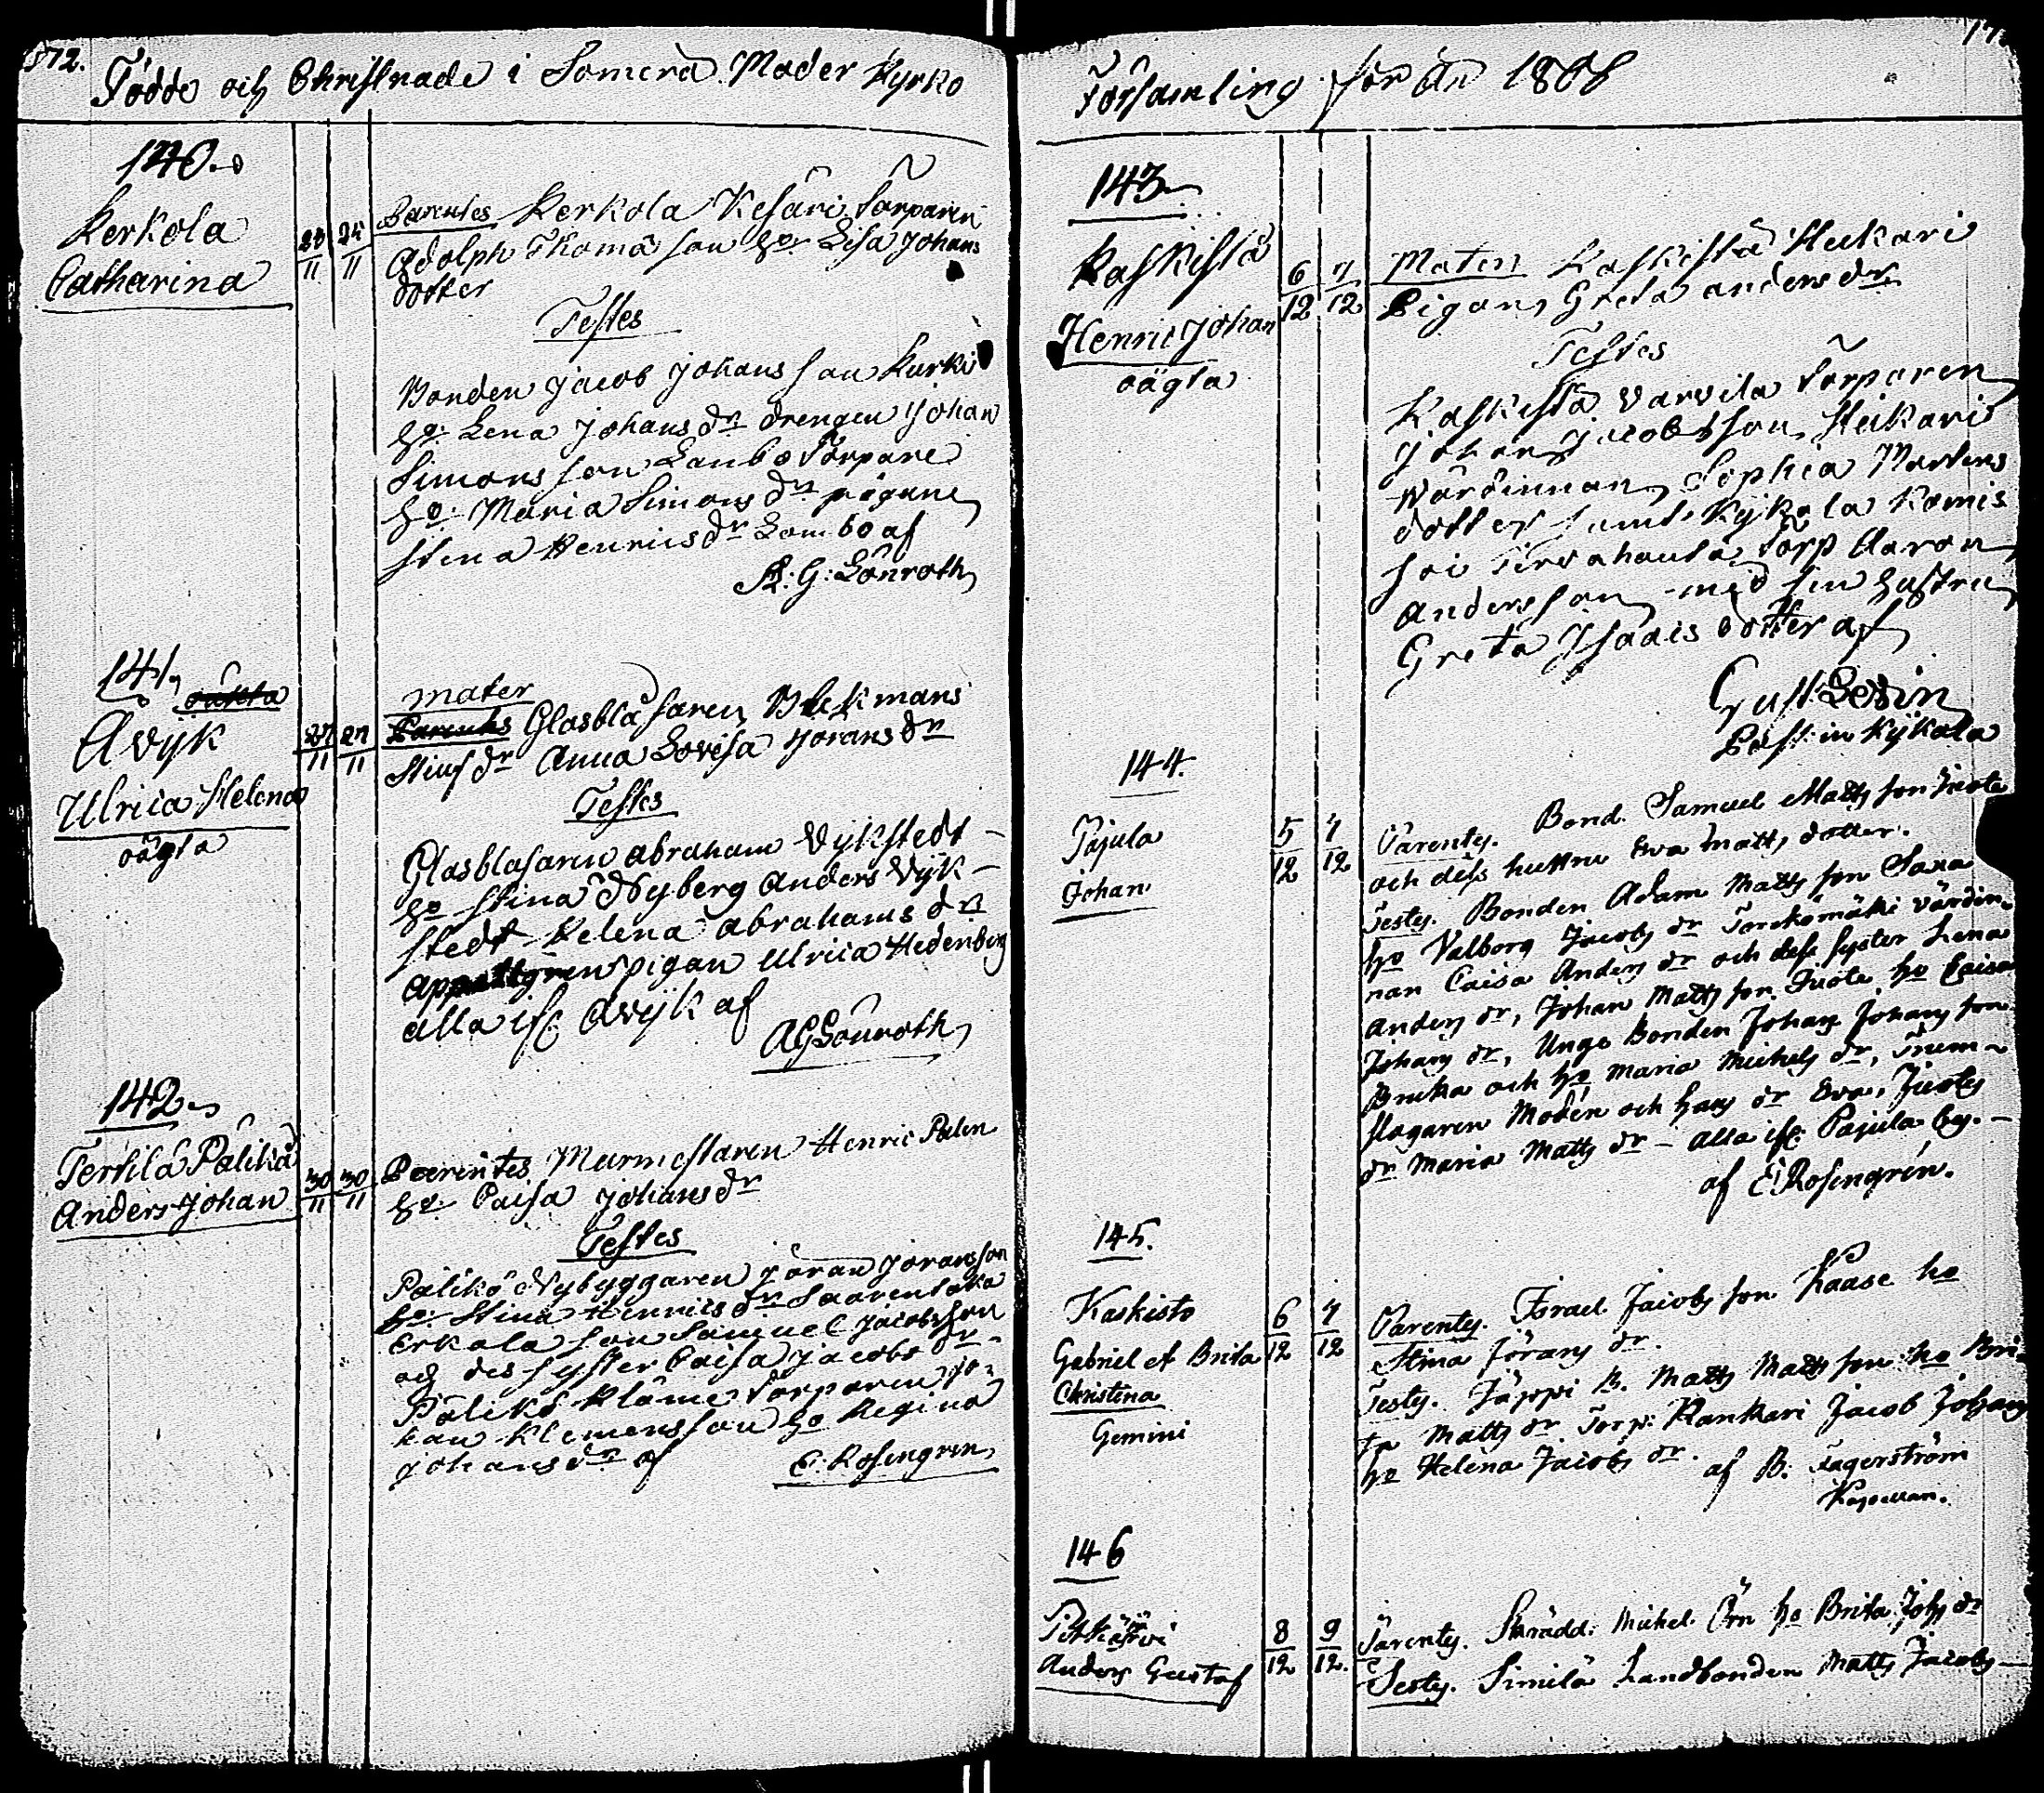 172.
Födde och Christnade i Somero Moder Kyrko
140.
Kerkola
Catharina
23/11 25/11
Parentes Kerkola Kesäri Torparen
Adolph Thomæ son ho: Lisa Johans
dotter
Testes
Bonden Jacob Johans son Kurki
ho: Lena Johans dr drengen Johan
Simons son Lambo Torpare
ho: Maria Simons dr pigan
Stina Henrics dr Lombo af
A: G: Lönroth
141.
Avijk
Ulrica Helena
oägta
27/11 27/11
mater
Parentes Glasblåsaren Blekmans
Stiuf dr Anna Lovisa Jörans dr
Testes
Glasblåsaren Abraham Vijkstedt
ho Stina Nyberg Anders Vijk-
stedt Helena Abrahams dr
pigan Ulrica Hedenberg
alla if: Avijk af
AGLönroth
142.
Terttilä Pälikö
Anders Johan
30/11 30/11
Parentes Murmestaren Henric Palen
ho Caisa Johans dr
Testes
Pälikö Nybyggaren Jöran Jöransson
ho: Stina Henrics dr Saarentaka
Erkola son Samuel Jacobsson
och des syster Caisa Jacobs dr
Pälikö Klåme Torparen Jo-
han Klemensson ho Regina
Johans dr af
E: Rosengren
Församling för År 1808
143
Kaskistå
Henric Johan
oägta
6/12 7/12
Mater Kaskistå Heikari
Pigan Greta Anders dr
Testes
Kaskistå Varvila Torparen
Johan Jacobsson, Heikari
Värdinnan Sophia Mårtens
dotter samt Kijkala Komis
Torp Aaron
Andersson med sin hustru
Greta Isaacs dotter af
Gust: Levin
Past: in Kijkala
144.
Pajula
Johan
5/12 7/12
Parentes. Bond. Samuel Matts son Juote
och dess hustru Eva Matts dotter.
Testes. Bonden Adam Matts son Saxa
ho Valborg Jacobs dr Torckomäki värdin-
nan Caisa Anders dr och dess syster Lena
Anders dr, Johan Matts son Juote ho Caisa
Johans dr, Unge Bonden Johan Johans son
Bruka och ho Maria Michels dr, Trum-
slagaren Modén och hans dr Eva, Juotes
dr Maria Matts dr - alla if: Pajula by. -
af E Rosengrén.
145.
Kaskisto
Gabriel et Brita
Christina
Gemini
6/12 7/12
Parentes. Israel Jacobs son Kaase ho
Stina Jörans dr.
Testes. Jäppi B. Matts Matts son ho Bri-
ta Matts dr. Torp: Rankari Jacob Johans
ho Helena Jacobs dr.
af B. Fagerström
Kapellan.
146
Pitkäjärvi
Anders Gustaf
8/12 9/12.
Parentes. Skrädd: Michel Örn ho Brita Johs dr
Testes. Similä Landbonden Matts Jacobs-